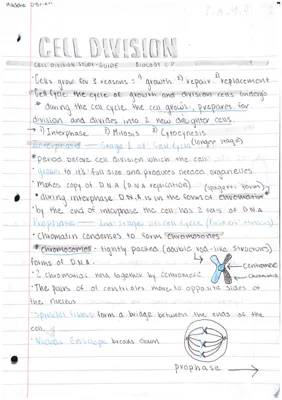 CELL DIVISION
CELL DIVISION STUDY GUIDE BIOLOGY
• Cells grow for 3 reasons: 1) growth 2) repair 3) replacement
• Cell Cycle the cycle of growth and division cells undergo
* during the cell cycle the cell grows, prepares for
division and divides into 2 new daughter cells.
→ 1) Interphase 2) Mitosis 3) Cytokinesis
Interphase — Stage 1 of Cell Cycle (longer stage)
* period before cell division which the cell:
• grows to it's full size and produces needed organelles
• Makes copy of D.N.A (D.N.A replication) (spagetti form)
* during interphase D.N.A is in the form of chromatin
• by the end of interphase the cell has 2 pairs of D.N.A
Prophase — 2nd stage of cell cycle (first of mitosis)
• Chromatin condenses to form "chromosomes"
* Chromosomes - tightly packed (double rod-like structures)
forms of D.N.A.
• 2 chromatids held together by centromere
centromere
chromatids
• The pairs of of centrioles move to opposite sides of
the nucleus
• Spindle Fibers form a bridge between the ends of the
cell
• Nuclear Envelope breaks down
prophase →